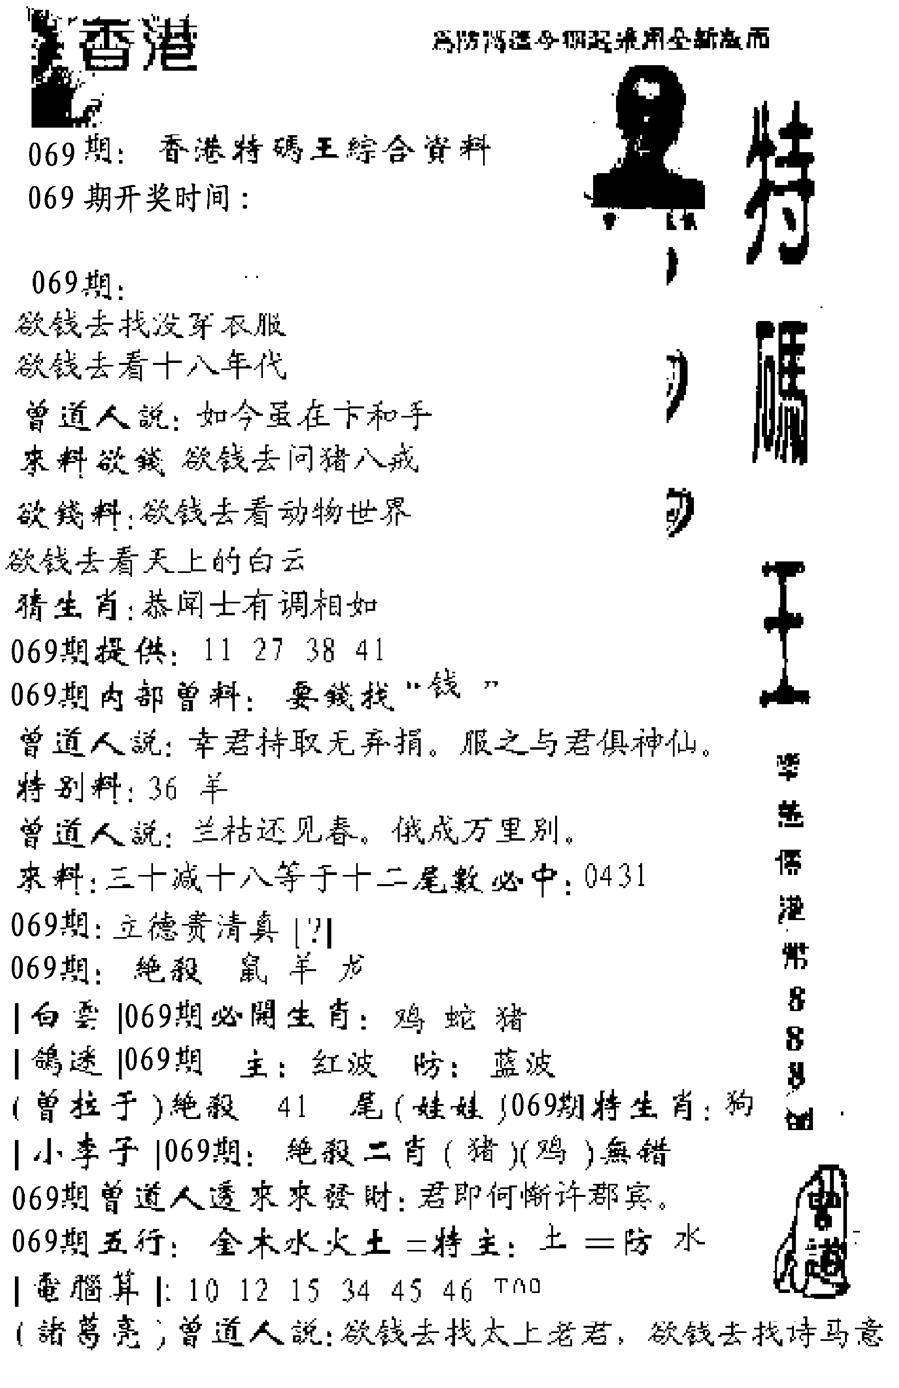 香港
為防高透今期起採用全新版面
069期：香港特碼王綜合資料
069期开奖时间：
069期：
欲钱去找没穿衣服
欲钱去看十八年代
曾道人説：如今虽在卞和手
來料欲錢 欲钱去问猪八戒
欲錢料：欲钱去看动物世界
欲钱去看天上的白云
猜生肖：恭闻士有调相如
069期提供：11 27 38 41
069期内部曾料：要錢找“钱”
曾道人説：幸君持取无弃捐。服之与君俱神仙。
特别料：36 羊
曾道人説：兰枯还见春。俄成万里别。
來料：三十减十八等于十二尾數必中：0431
069期：立德贵清真|?|
069期：絶殺 鼠 羊 龙
|白雲|069期必開生肖：鸡 蛇 猪
|鴿迷|069期 主：红波 防：蓝波
(曾拉于)絶殺 41 尾(娃娃)069期特生肖：狗
|小李子|069期：絶殺二肖(猪)(鸡)無错
069期曾道人透來來發財：君即何惭许郡宾。
069期五行：金木水火土=特主：土=防 水
|電腦算|：10 12 15 34 45 46
(諸葛亮)曾道人説：欲钱去找太上老君，欲钱去找诗马意
特碼王
港幣888
曾道